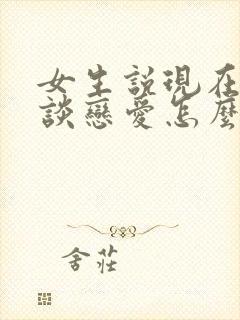 女生説現在
談戀愛怎麼
舍莊